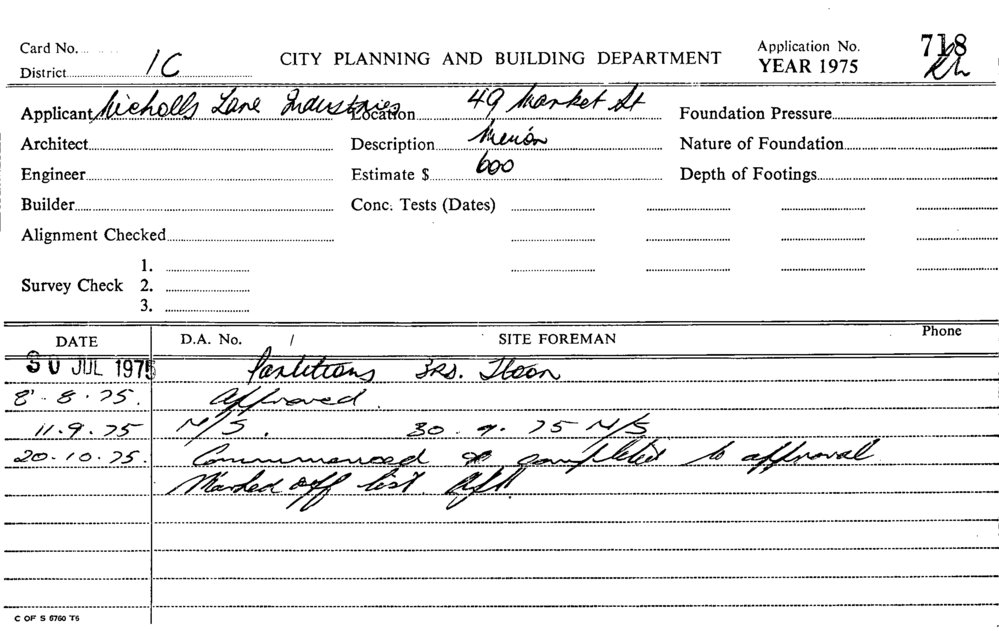 Card No.
District 1C
CITY PLANNING AND BUILDING DEPARTMENT
Application No. 718
YEAR 1975
Applicant Nicholls Lane Industries
Location 49 Market St
Foundation Pressure
Architect
Description
Nature of Foundation
Engineer
Estimate $ 600
Depth of Footings
Builder
Conc. Tests (Dates)
Alignment Checked
Survey Check
1.
2.
3.
DATE D.A. No. / SITE FOREMAN Phone
30 JUL 1975 Partitions 3RD. Floor
8.8.75. Approved.
11.9.75 N/S. 30.9.75 N/S
20.10.75. Commenced & completed to approval
Marked off list.
C OF S 6760 T6